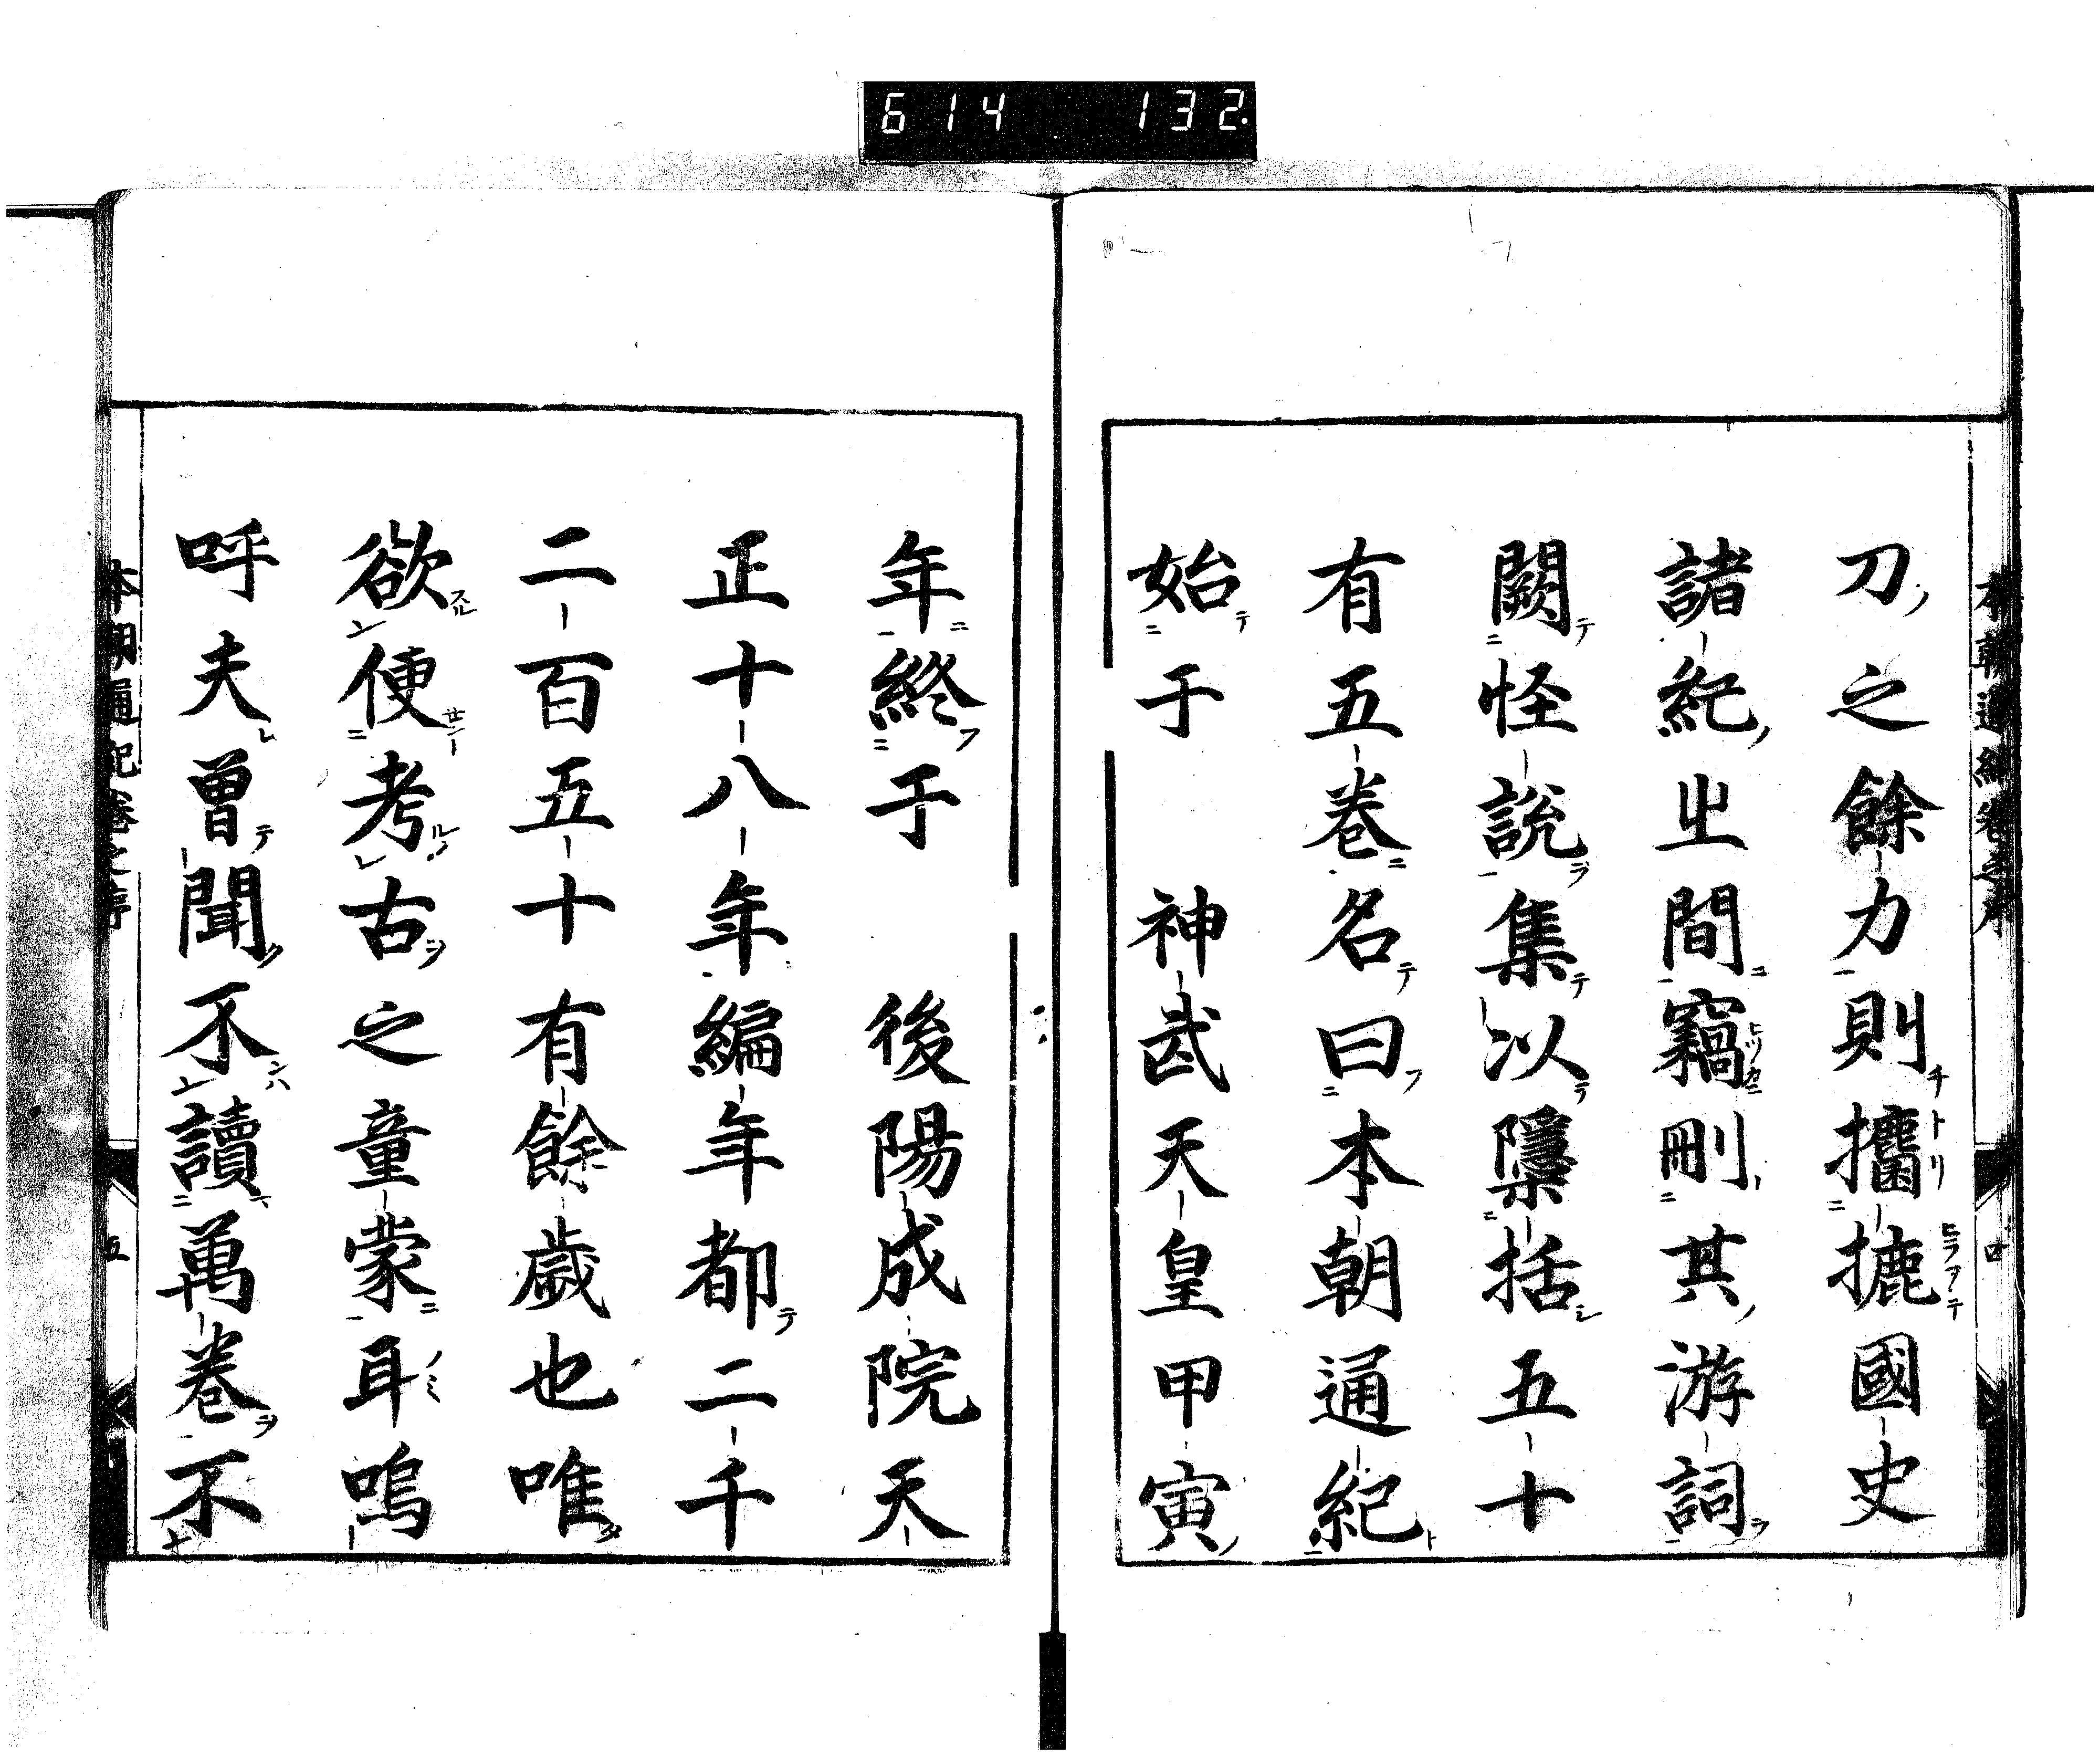 614 132
刀之餘力則攟摭國史
諸紀之間竊刪其游詞
闕怪說集以隱括五十
有五卷名曰本朝通紀
始于 神武天皇甲寅
年終于 後陽成院天
正十八年編年都二千
二百五十有餘歲也唯
欲便考古之童蒙耳嗚
呼夫曾聞不讀萬卷不
本朝通紀卷之序
五